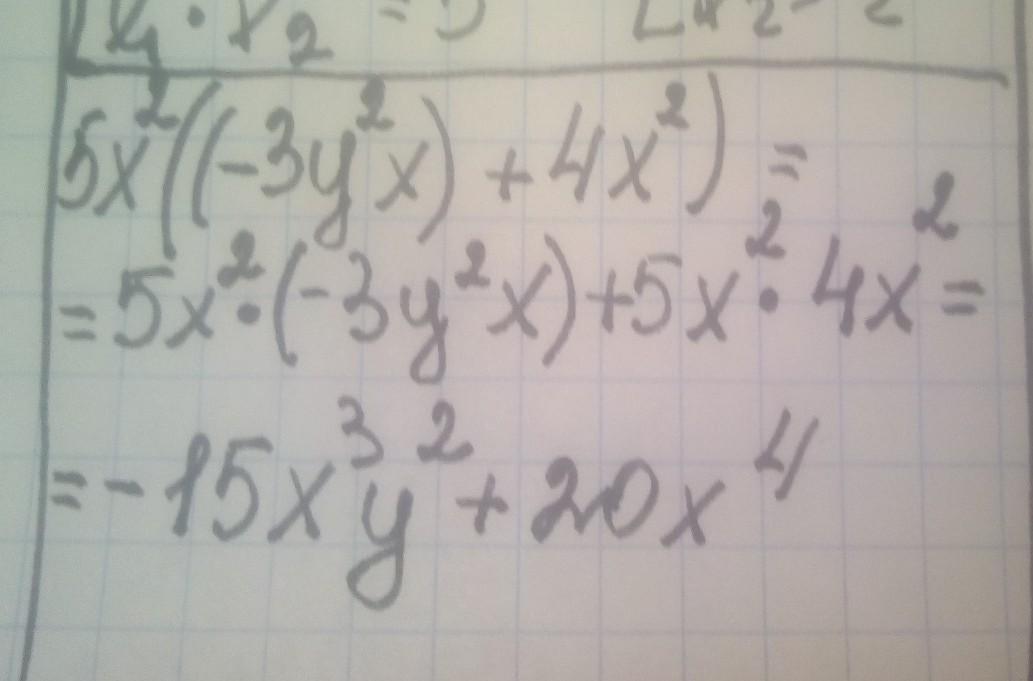 x₁ · x₂ = 5
5x²((-3y²x) + 4x²) =
= 5x² · (-3y²x) + 5x² · 4x² =
= -15x³y² + 20x⁴